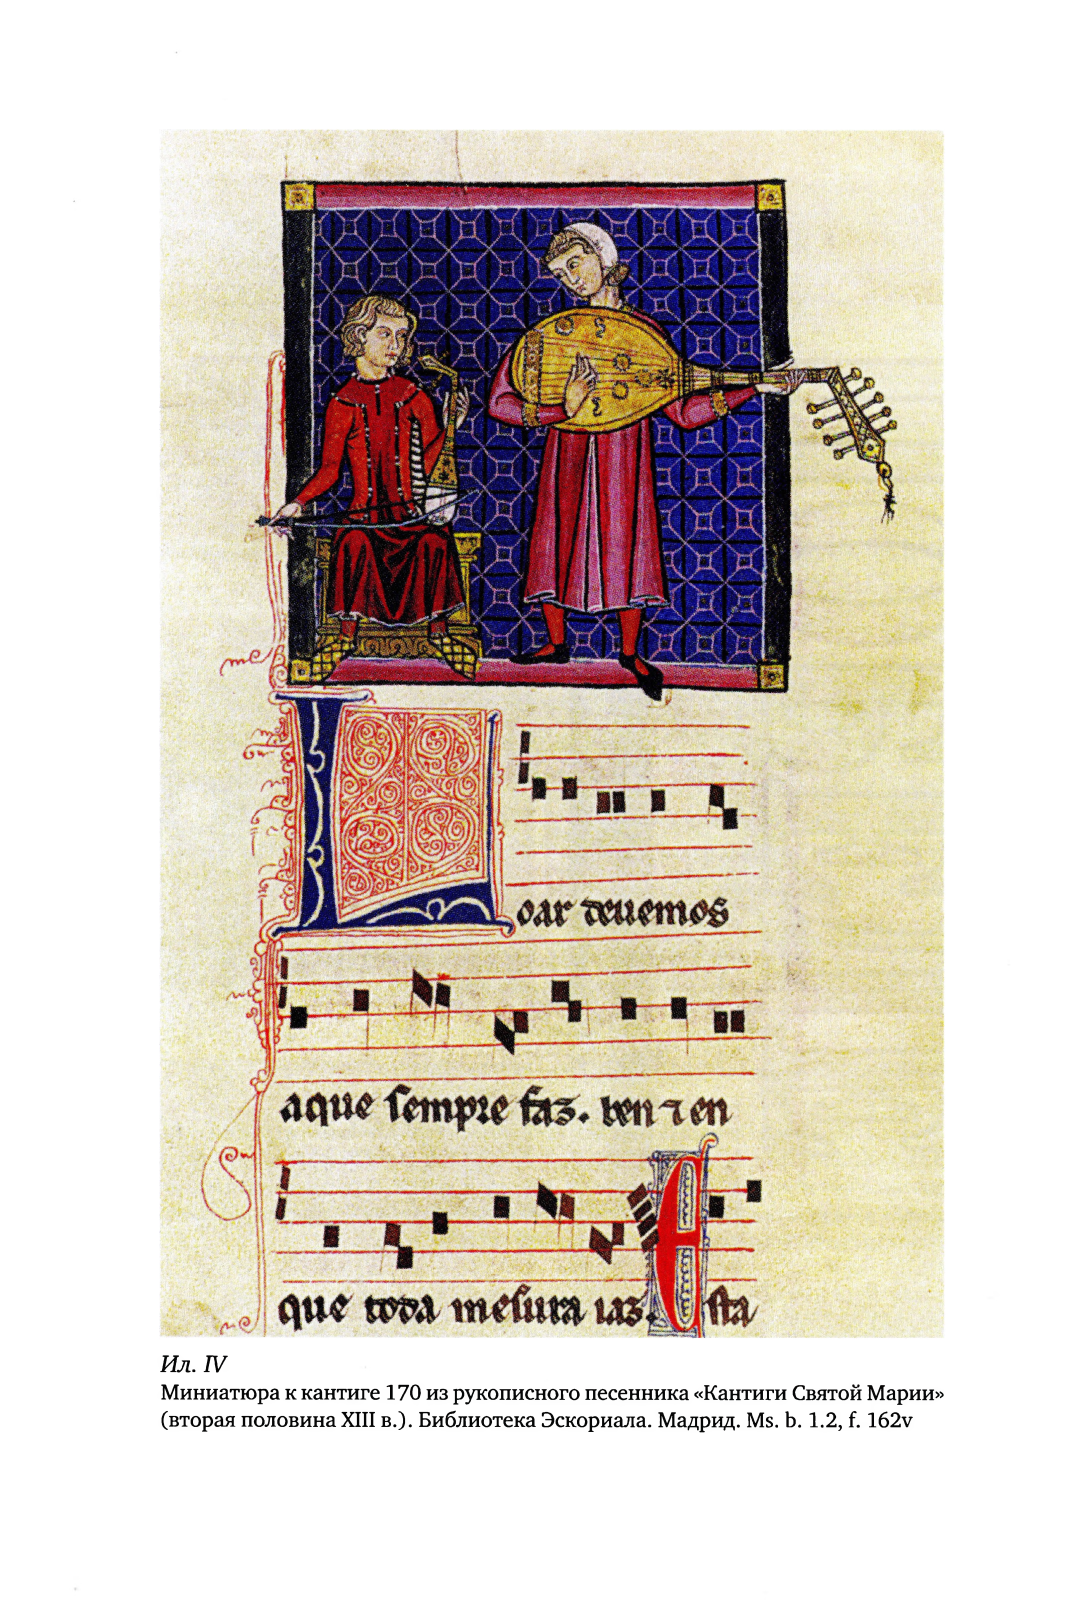 Loar deuemos
aque sempre faz. ben ⁊ en
que toda mesura iaz. Esta
Ил. IV
Миниатюра к кантиге 170 из рукописного песенника «Кантиги Святой Марии»
(вторая половина XIII в.). Библиотека Эскориала. Мадрид. Ms. b. 1.2, f. 162v